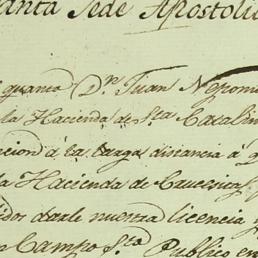 anta Sede Apostoli
quanto Dn. Juan Nepomu
la Hacienda de Sta Catalin
ncion á la larga distancia á q
la Hacienda de
idos darle nuestra licencia y
Campo Sto. Publico en